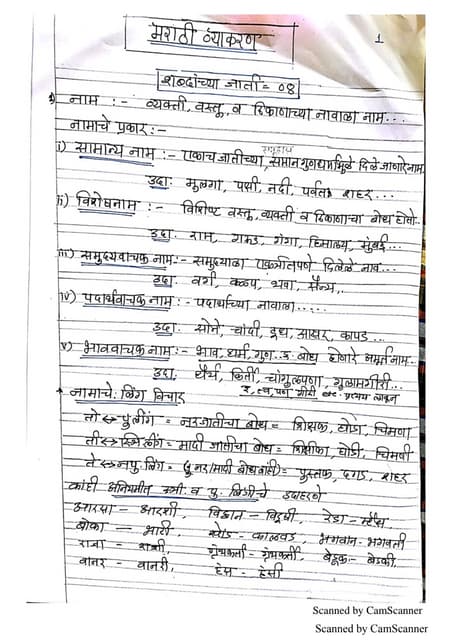 मराठी व्याकरण
1
शब्दांच्या जाती = 08
1) नाम :- व्यक्ती, वस्तू, व ठिकाणाच्या नावाला नाम...
नामाचे प्रकार :-
i) सामान्य नाम :- एकाच जातीच्या, समान गुणधर्मामुळे दिले जाणारे नाम
उदा. मुलगा, पक्षी, नदी, पर्वत शहर...
ii) विशेषनाम :- विशिष्ट वस्तू, व्यक्ती व ठिकाणाचा बोध होतो..
उदा. राम, गरुड, गंगा, हिमालय, मुंबई...
iii) समुदयवाचक नाम :- समुदयाला एकत्रितपणे दिलेले नाव...
उदा. वर्ग, कळप, थवा, सैन्य,
iv) पदार्थवाचक नाम :- पदार्थाच्या नावाला.....
उदा. सोने, चांदी, दूध, साखर, कापड...
v) भाववाचक नाम :- भाव, धर्म, गुण इ. बोध होणारे नाम..
उदा. धैर्य, किर्ती, चांगुलपणा, गुलामगीरी...
त्व, पण गीरी प्रत्यय लावून
* नामाचे लिंग विचार
तो पुलींग = नरजातीचा बोध = शिक्षक, घोडा, चिमणा
ती स्त्रिलींग = मादी जातीचा बोध = शिक्षीका, घोडी, चिमणी
ते नपु. लिंग = (नर/मादी बोध नाही) = पुस्तक, दगड, शहर
कांही अनियमीत स्त्री व पु. लिंगीचे उदाहरणे
आरसा - आरशी, विद्वान - विदूषी, रेडा - म्हैस
बोका - भाटी, खोंड - कालवड, भगवान - भगवती
राजा - राज्ञी, ग्रंथकर्ता - ग्रंथकर्ती, बेडूक - बेडकी,
वानर - वानरी, हंस - हंसी
Scanned by CamScanner
Scanned by CamScanner